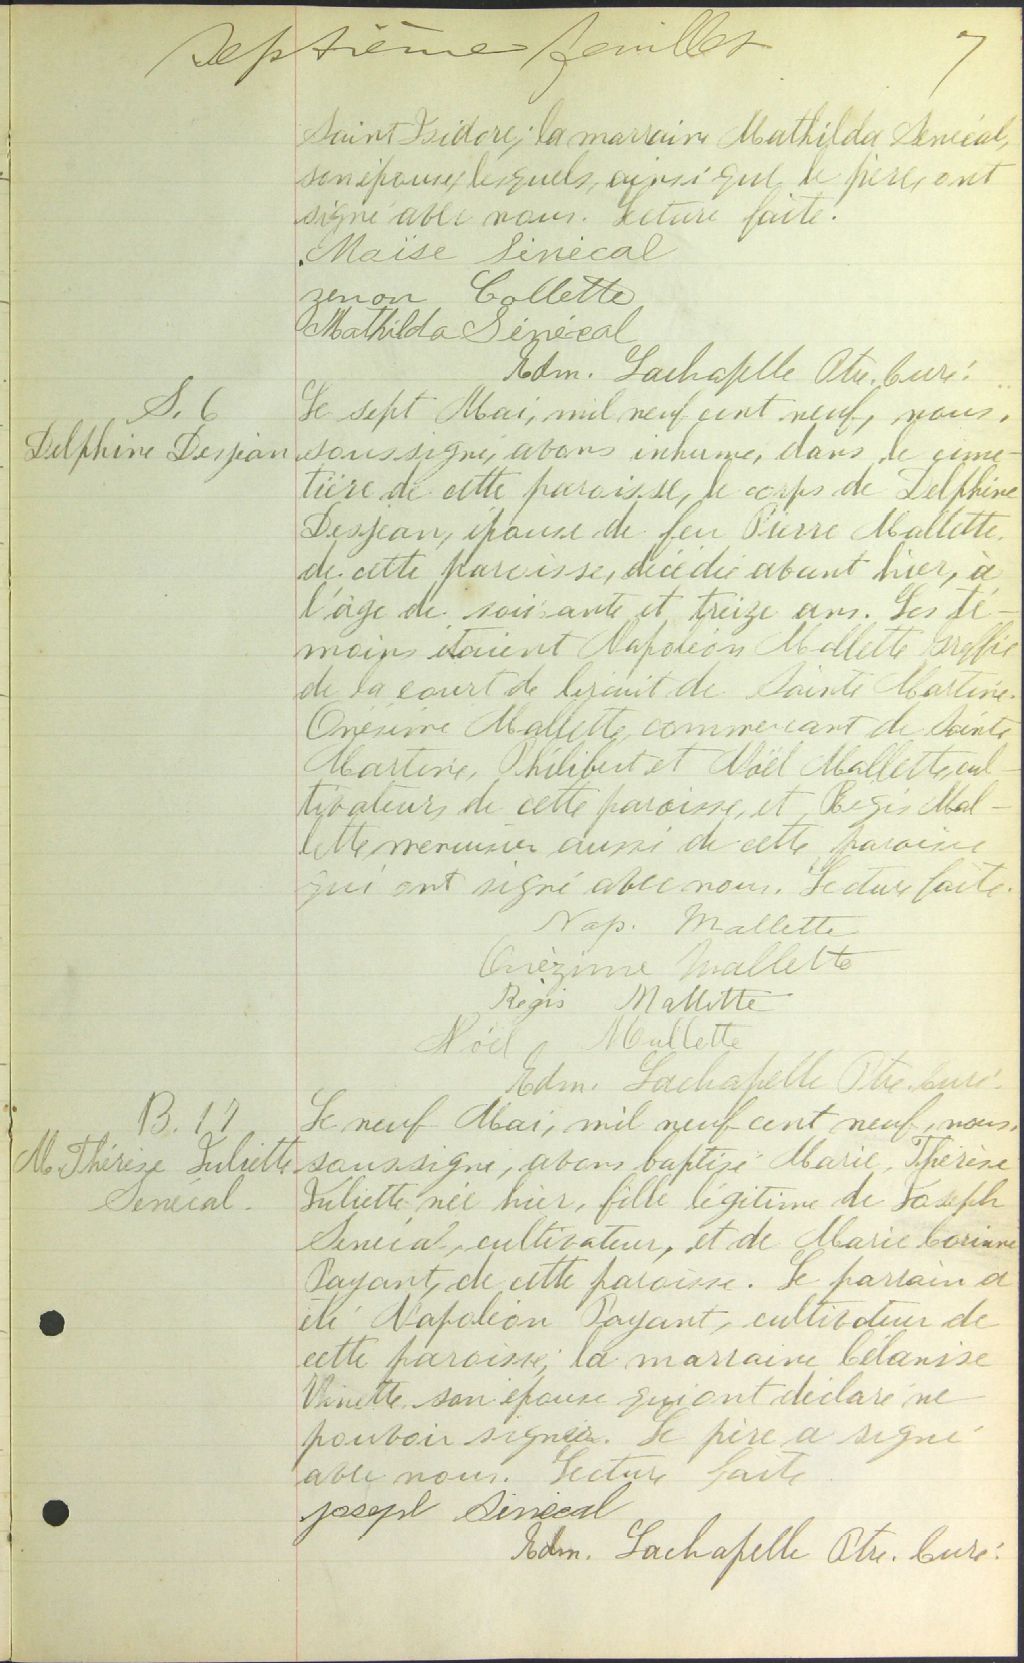 Septième feuillet 7
Saint Isidore; la marraine Mathilda Senécal,
son épouse, lesquels, ainsi que le père, ont
signé avec nous. Lecture faite.
Moïse Sénécal
zenon Collette
Mathilda Sénécal
Edm. Lachapelle Ptre. Curé.
S. 6
Delphine Desjean
Le sept Mai, mil neuf cent neuf, nous,
soussigné, avons inhumé, dans le cime-
tière de cette paroisse, le corps de Delphine
Desjean, épouse de feu Pierre Mallette,
de cette paroisse, décédée avant hier, à
l'âge de soixante et treize ans. Les té-
moins étaient Napoléon Mallette greffie
de la court de Circuit de Sainte Martine.
Onésime Mallette, commercant de Sainte
Martine, Philibert et Noël Mallette, cul-
tivateurs de cette paroisse, et Régis Mal-
lette, menuisier aussi de cette paroisse
qui ont signé avec nous. Lecture faite.
Nap. Mallette
Onèzime Mallette
Régis Mallette
Noël Mallette
Edm. Lachapelle Ptre. Curé.
B. 17
M. Thérèse Juliette
Senécal.
Le neuf Mai, mil neuf cent neuf, nous,
soussigné, avons baptisé Marie, Thérèse
Juliette née hier, fille légitime de Joseph
Senécal, cultivateur, et de Marie Corinne
Payant, de cette paroisse. Le parrain a
été Napoléon Payant, cultivateur de
cette paroisse; la marraine Célanise
Vinette son épouse qui ont déclaré ne
pouvoir signer. Le père a signé
avec nous. Lecture faite
joseph Sénécal
Edm. Lachapelle Ptre. Curé.